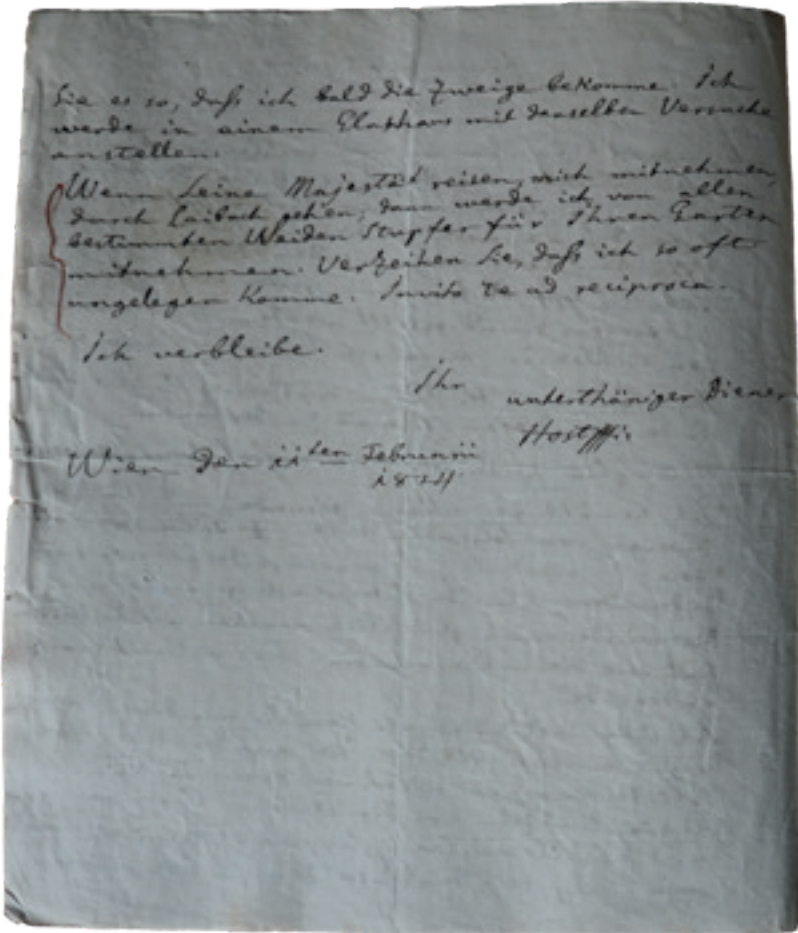 Sie es so, daß ich bald die Zweige bekomme. Ich
werde in einem Glashaus mit denselben Versuche
anstellen.
Wenn Seine Majestät reisen, mich mitnehmen,
durch Laibach gehen, dann werde ich, von allen
bestimmten Weiden Stupfer für Ihren Garten
mitnehmen. Verzeihen Sie, daß ich so oft
ungelegen komme. Invito te ad reciproca.
Ich verbleibe.
Ihr
unterthäniger Diener
Host
Wien den 11ten Februarii